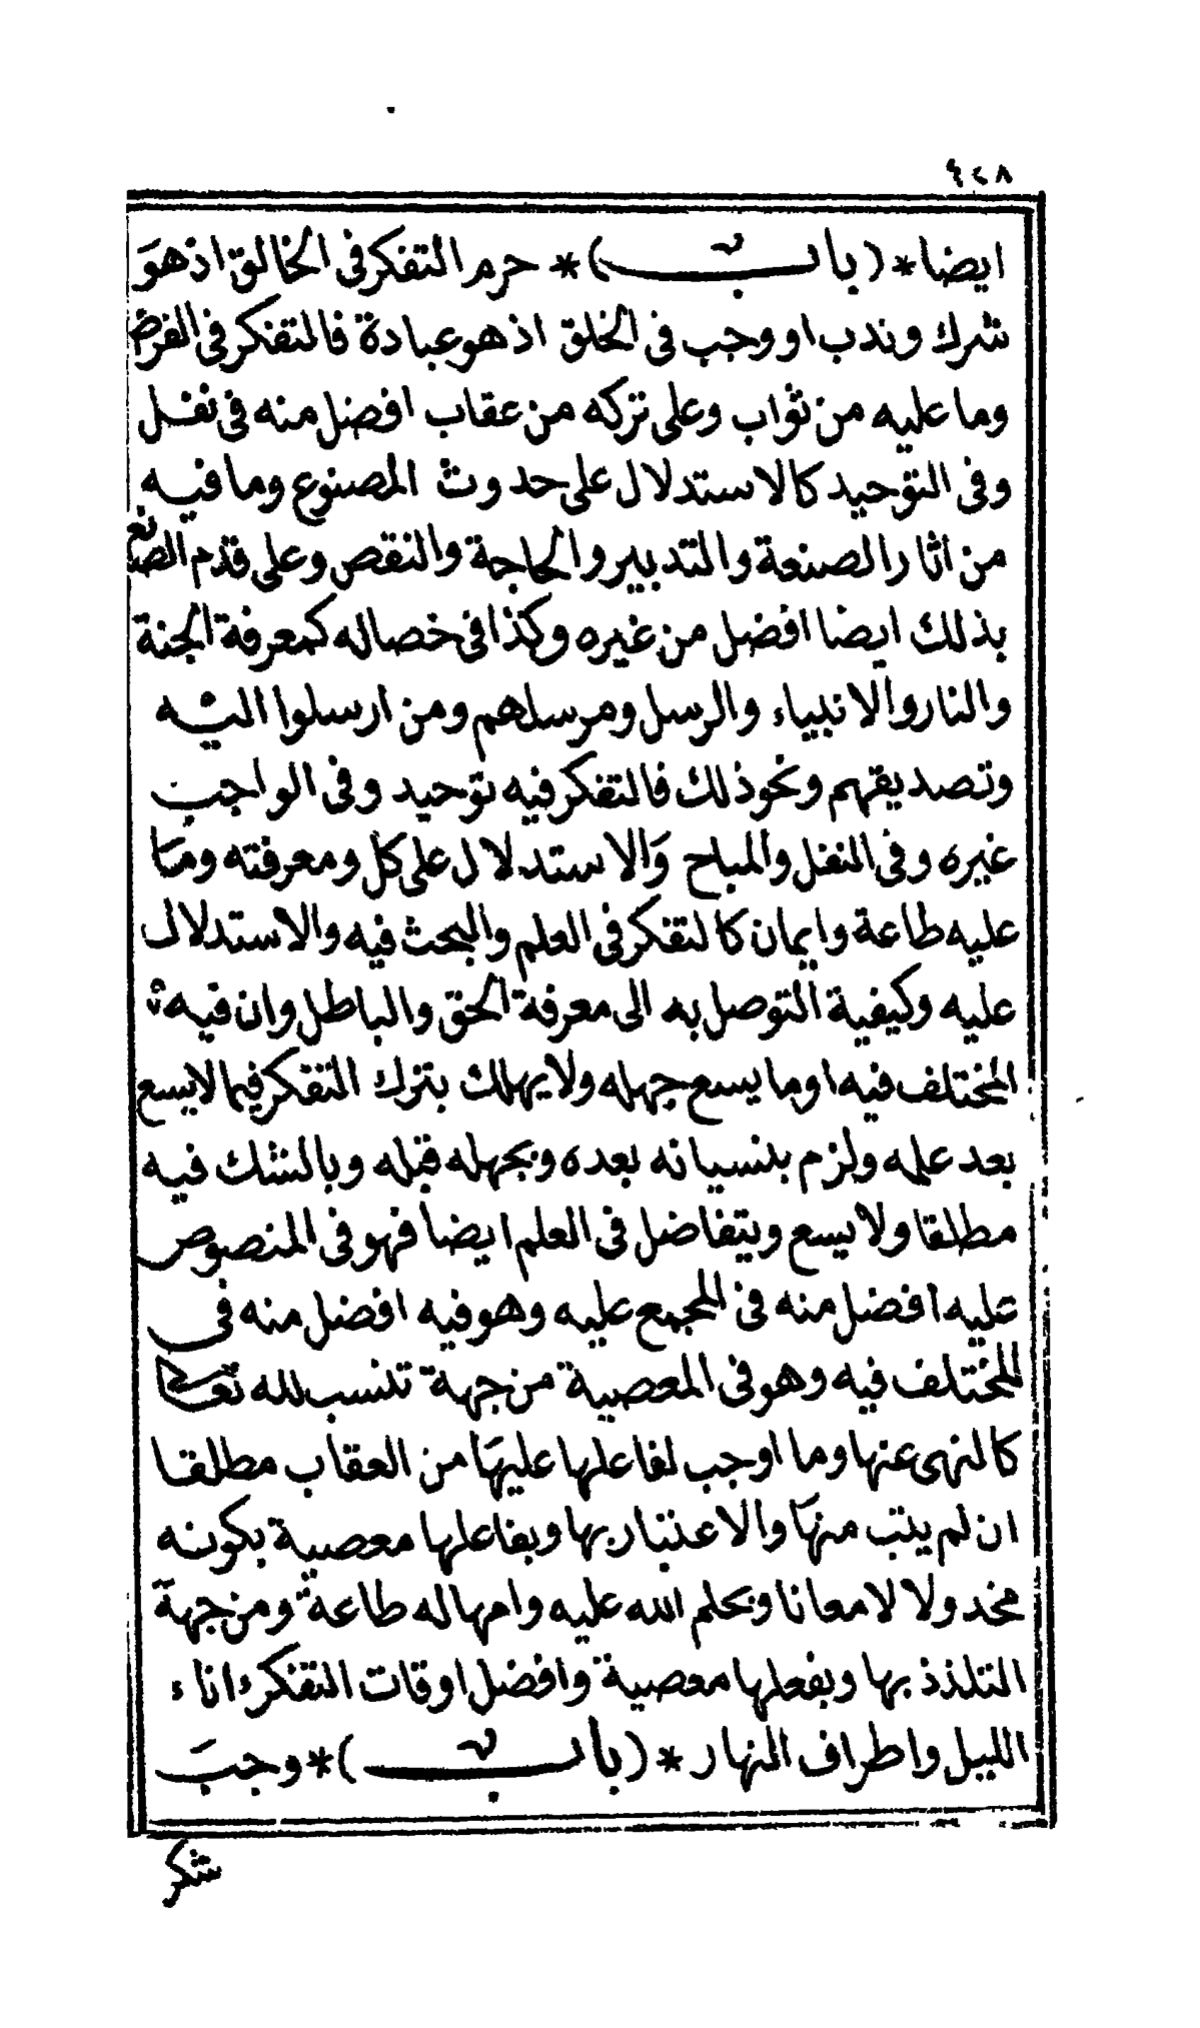 ٤٢٨
ايضا * ( باب ) * حرم التفكر فى الخالق اذ هو
شرك وندب او وجب فى الخلق اذ هو عبادة فالتفكر فى الفرض
وما عليه من ثواب وعلى تركه من عقاب افضل منه فى نفل
وفى التوحيد كالاستدلال على حدوث المصنوع وما فيه
من اثار الصنعة والتدبير والحاجة والنقص وعلى قدم الصانع
بذلك ايضا افضل من غيره وكذا فى خصاله كمعرفة الجنة
والنار والانبياء والرسل ومرسلهم ومن ارسلوا اليه
وتصديقهم ونحو ذلك فالتفكر فيه توحيد وفى الواجب
غيره وفى النفل والمباح والاستدلال على كل ومعرفته وما
عليه طاعة وايمان كالتفكر فى العلم والبحث فيه والاستدلال
عليه وكيفية التوصل به الى معرفة الحق والباطل وان فيه
المختلف فيه او ما يسع جهله ولا يهلك بترك التفكر فيما لا يسع
بعد علمه ولزم بنسيانه بعده وبجهله قبله وبالشك فيه
مطلقا ولا يسع ويتفاضل فى العلم ايضا فهو فى المنصوص
عليه افضل منه فى المجمع عليه وهو فيه افضل منه فى
المختلف فيه وهو فى المعصية من جهة تنسب لله تعالى
كالنهى عنها وما اوجب لفاعلها عليها من العقاب مطلقا
ان لم يتب منها والاعتبار بها وبفاعلها معصية بكونه
مخذولا لا معانا وبحلم الله عليه وامهاله طاعة ومن جهة
التلذذ بها وبفعلها معصية وافضل اوقات التفكر اناء
الليل واطراف النهار * ( باب ) * وجب
شكر